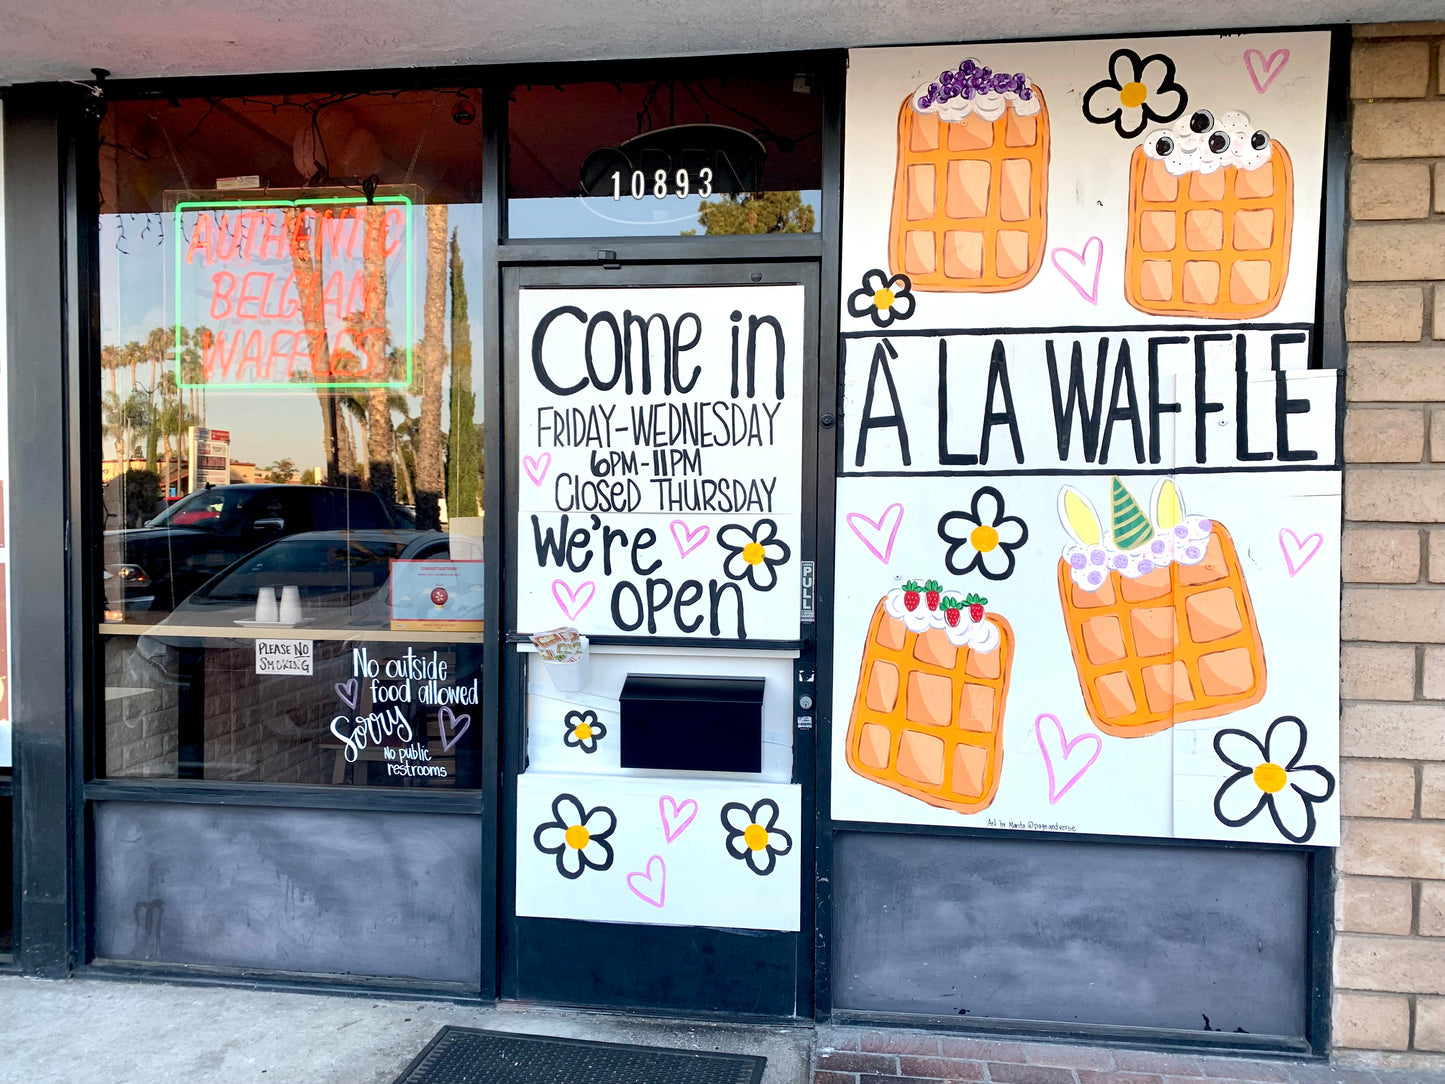 AUTHENTIC
BELGIAN
WAFFLES
OPEN
10893
Come in
FRIDAY-WEDNESDAY
6PM-11PM
CLOSED THURSDAY
We're
open
PULL
À LA WAFFLE
PLEASE NO
SMOKING
No outside
food allowed
Sorry
No public
restrooms
CONGRATULATIONS!
Art by Marita @pageandverse